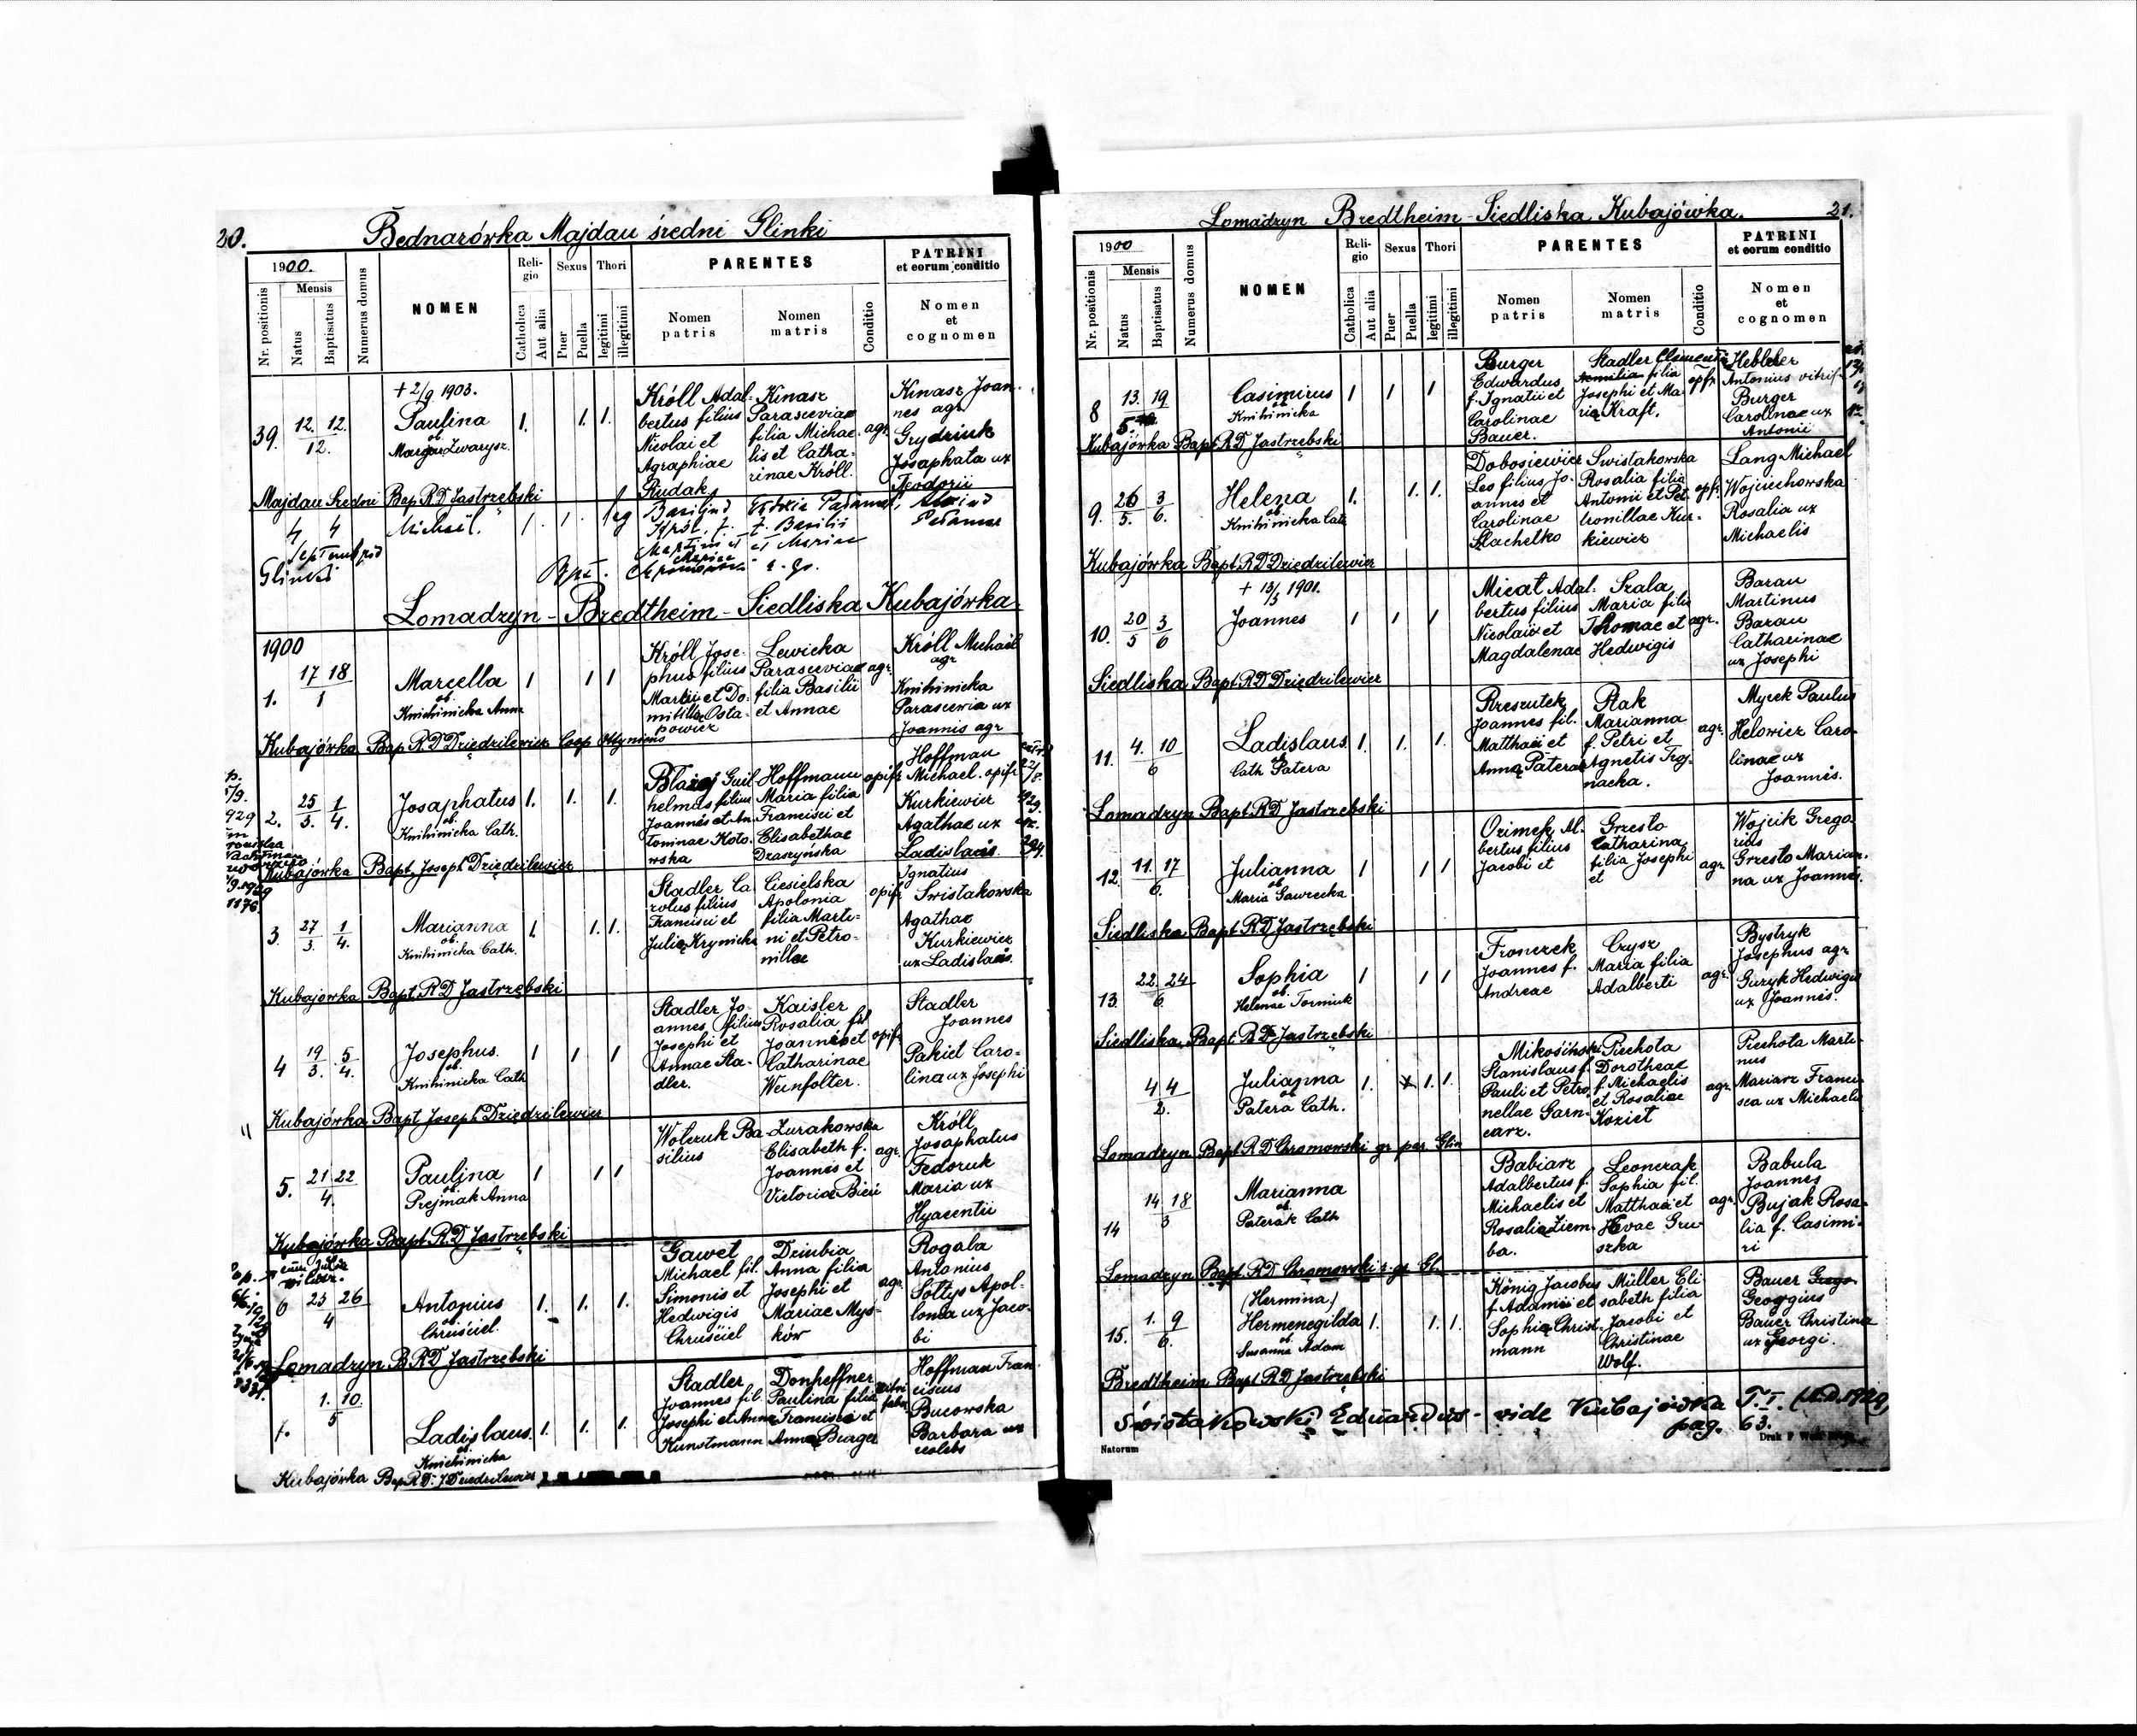 20.
Bednarówka Majdan średni Glinki
1900.
Mensis
Nr. positionis
Natus
Baptisatus
Numerus domus
NOMEN
Reli-
gio
Catholica
Aut alia
Sexus
Puer
Puella
Thori
legitimi
illegitimi
PARENTES
Nomen
patris
Nomen
matris
Conditio
PATRINI
et eorum conditio
Nomen
et
cognomen
+ 2/9 1903.
39. 12. 12.
12.
Paulina
ob.
Zwarysz.
1. 1. 1.
Króll Adal-
bertus filius
Nicolai et
Agraphiae
Rudak
Kinasz
Parasceviae
filia Michae-
lis et Catha-
rinae Króll.
agr.
Kinasz Joan-
nes agr
Grydziuk
Josaphata ux
Teodorii
Majdan Średni Bap. R D Jastrzębski
4 4
Septemb
Michaël.
Glinki
Bapt.
Lomadzyn - Bredtheim - Siedliska Kubajówka
1900
1. 17 18
1
Marcella
ob.
Knihinicka Anna
1 1 1
Króll Jose-
phus filius
Martini et Do-
mitillae Osta-
powicz
Lewicka
Parasceviae
filia Basilii
et Annae
agr
Króll Michaël
agr
Knihinicka
Parascewia ux
Joannis agr
Kubajówka Bap. R D Dziędzilewicz Coop Ottyniens
2. 25 1
3. 4.
Josaphatus
ob.
Knihinicka Cath.
1. 1. 1.
Błażej Guil-
helmus filius
Joannis et An-
toninae Koto-
wska
Hoffmann
Maria filia
Francisci et
Elisabethae
Draszyńska
opifx
Hoffman
Michael. opifx
Kurkiewicz
Agathae ux
Ladislais.
Kubajówka Bapt. Joseph Dziędzilewicz
3. 27 1
3. 4.
Marianna
ob.
Knihinicka Cath.
1. 1. 1.
Stadler Ca-
rolus filius
Francisci et
Julia Krynicka
Ciesielska
Apolonia
filia Marti-
ni et Petro-
nillae
opifx
Ignatius
Swistakowska
Agathae
Kurkiewicz
ux Ladislais.
Kubajówka Bapt. R D Jastrzębski
4 19 5
3. 4.
Josephus.
ob.
Knihinicka Cath
1 1 1
Stadler Jo-
annes filius
Josephi et
Annae Sta-
dler.
Kaisler
Rosalia fil
Joannis et
Catharinae
Weinfolter.
opifx
Stadler
Joannes
Pakiet Caro-
lina ux Josephi
Kubajówka Bapt Joseph Dziędzilewicz
5. 21 22
4.
Paulina
ob.
Prejniak Anna
1 1 1
Wolczuk Ba-
silius
Zurakowska
Elisabeth f.
Joannis et
Victoriae
agr.
Króll
Josaphatus
Fedoruk
Maria ux
Hyacentii
Kubajówka Bapt R. D Jastrzębski
6 25 26
4
Antonius
ob.
Chruściel.
1. 1. 1.
Gaweł
Michael fil.
Simonis et
Hedwigis
Chruściel
Dziubia
Anna filia
Josephi et
Mariae Myś-
ków
agr.
Rogala
Antonius
Sołtys Apol-
lonia ux Jaco-
bi
Lomadzyn B. R D Jastrzębski
7. 1. 10.
5
Ladislaus
ob.
Knihinicka
1. 1. 1.
Stadler
Joannes fil.
Josephi et Anna
Kunstmann
Donheffner
Paulina filia
Francisci et
Anna Burger
Hoffman Fran
ciscus
Bucowska
Barbara ux
Kubajówka Bap R D. J Dziędzilewicz
Lomadzyn Bredtheim - Siedliska Kubajówka.
21.
1900
Mensis
Nr. positionis
Natus
Baptisatus
Numerus domus
NOMEN
Reli-
gio
Catholica
Aut alia
Sexus
Puer
Puella
Thori
legitimi
illegitimi
PARENTES
Nomen
patris
Nomen
matris
Conditio
PATRINI
et eorum conditio
Nomen
et
cognomen
8 13. 19
5.
Casimirus
ob
Knihinicka
1 1 1
Burger
Edwardus
f. Ignatii et
Carolinae
Bauer.
Stadler
filia
Josephi et Ma-
ria Kraft.
opfx
Hebleker
Antonius vitrif.
Burger
Carolinae ux
Antonii
Kubajówka Bapt R D Jastrzebski
9. 26 3
5. 6.
Helena
ob.
Knihinicka Cath
1. 1. 1.
Dobosiewicz
Leo filius Jo-
annes et
Carolinae
Stachelko
Swistakowska
Rosalia filia
Antonii et Pet-
ronillae Kur-
kiewicz
opfx
Lang Michael
Wojciechowska
Rosalia ux
Michaelis
Kubajówka Bapt. R D Dziędzilewicz
+ 13/3 1901.
10. 20 3
5 6
Joannes
1 1 1
Micał Adal-
bertus filius
Nicolaii et
Magdalenae
Szala
Maria filia
Thomae et
Hedwigis
agr.
Baran
Martinus
Baran
Catharinae
ux Josephi
Siedliska Bapt R D Dziędzilewicz
11. 4. 10
6
Ladislaus
ob
Cath Patera
1. 1. 1.
Rzeszutek
Joannes fil.
Matthaei et
Anna Paterae
Ptak
Marianna
f. Petri et
Agnetis Troj-
nacka.
agr.
Myrek Paulus
Helowicz Caro-
linae ux
Joannis.
Lomadzyn Bapt R D Jastrzebski
12. 11. 17
6.
Julianna
ob
Maria Gawrecka
1 1 1
Ozimek Al-
bertus filius
Jacobi et
Grzesło
Catharina
filia Josephi
et
agr.
Wojcik Grego-
rius
Grzesło Marian-
na ux Joannis.
Siedliska Bapt R D Jastrzębski
13. 22. 24
6
Sophia
ob.
Helenae Torniuk
1 1 1
Fronczek
Joannes f.
Andreae
Czysz
Maria filia
Adalberti
agr.
Bystryk
Josephus agr.
Guzyk Hedwigis
ux Joannis.
Siedliska Bapt R D Jastrzębski
4 4
2.
Julianna
ob
Patera Cath.
1. 1. 1.
Mikośiński
Stanislaus f.
Pauli et Petro-
nellae Garn-
carz.
Piechota
Dorotheae
f. Michaelis
et Rosaliae
Kozieł
agr.
Piechota Marti-
nus
Mariarz Franci-
sca ux Michaelis
Lomadzyn Bapt R D Chromowski gr par. Glin
14 14 18
3
Marianna
ob.
Paterak Cath
Babiarz
Adalbertus f.
Michaelis et
Rosalia Ziem-
ba.
Leonczak
Sophia fil.
Matthaei et
Evae Gru-
szka
agr.
Babula
Joannes
Bujak Rosa-
lia f. Casimi-
ri
Lomadzyn Bapt R D Chromowski r. gr Gl.
15. 1. 9
6.
(Hermina)
Hermenegilda
ob.
Susanna Adam
1. 1. 1.
König Jacobus
f. Adami et
Sophia Christ-
mann
Müller Eli
sabeth filia
Jacobi et
Christinae
Wolf.
Bauer
Georgius
Bauer Christina
ux Georgi.
Bredtheim Bapt R D Jastrzębski
Świstakowski Eduardus - vide Kubajówka T. I.
pag. 63.
Natorum